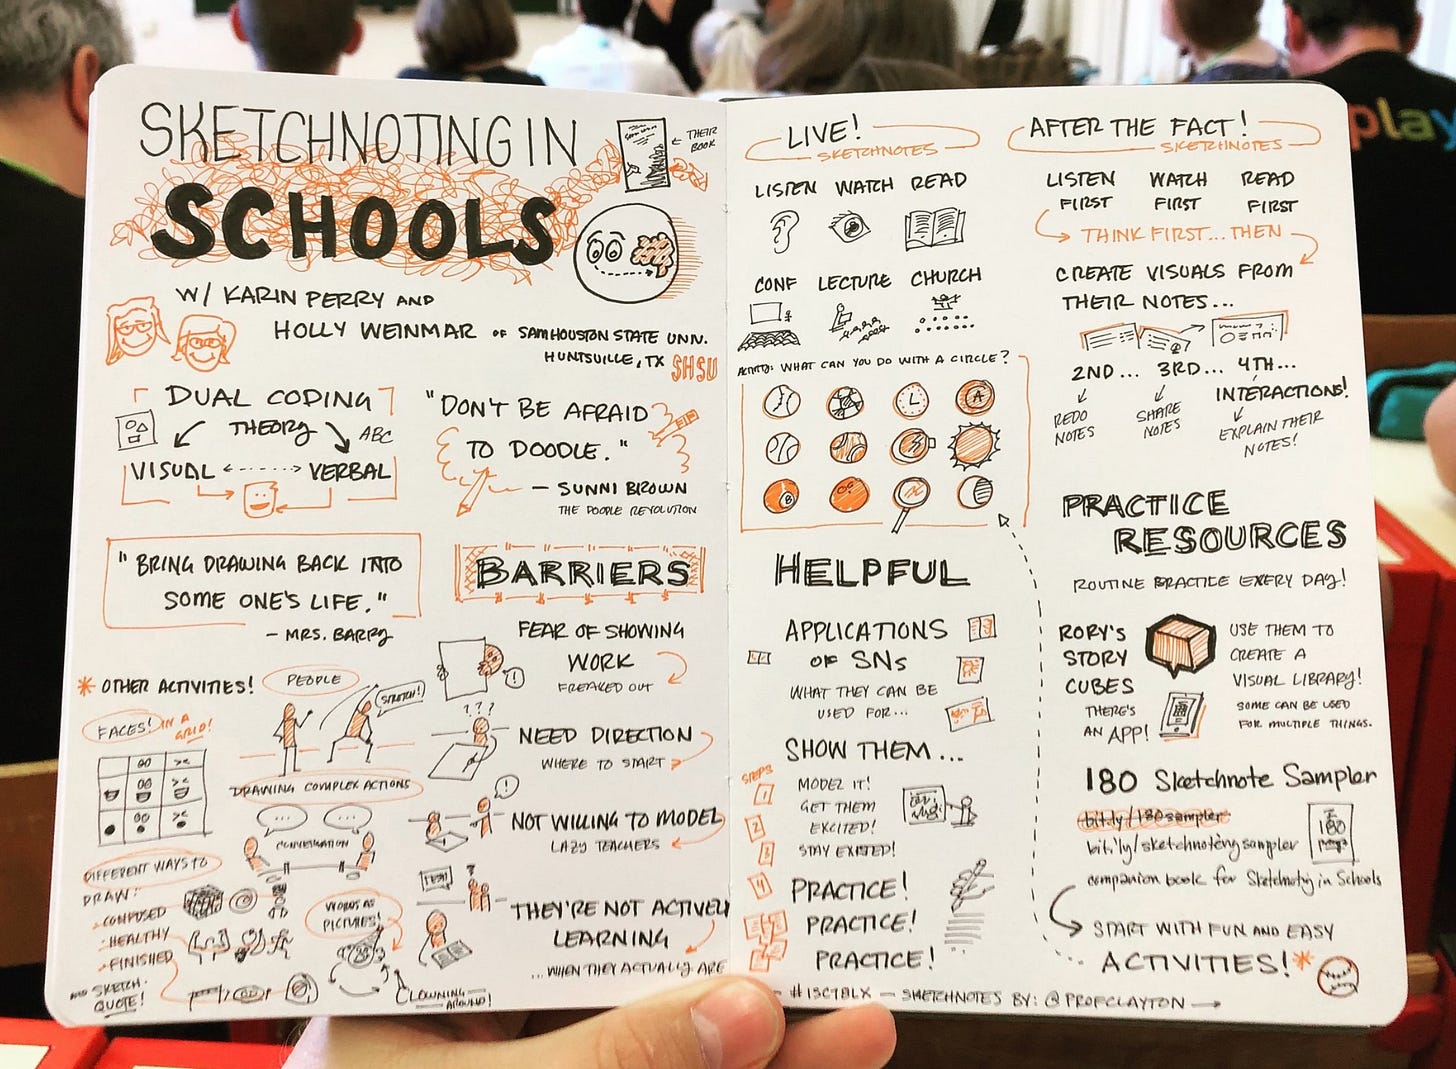 SKETCHNOTING IN
SCHOOLS
← THEIR
BOOK
W/ KARIN PERRY AND
HOLLY WEINMAR OF SAM HOUSTON STATE UNIV.
HUNTSVILLE, TX SHSU
DUAL CODING
THEORY
ABC
VISUAL <----> VERBAL
"DON'T BE AFRAID
TO DOODLE."
— SUNNI BROWN
THE DOODLE REVOLUTION
"BRING DRAWING BACK INTO
SOME ONE'S LIFE."
— MRS. BARRY
BARRIERS
FEAR OF SHOWING
WORK
FREAKED OUT
!
???
NEED DIRECTION
WHERE TO START ?
!
NOT WILLING TO MODEL
LAZY TEACHERS
THEY'RE NOT ACTIVELY
LEARNING
...WHEN THEY ACTUALLY ARE
* OTHER ACTIVITIES!
PEOPLE
STRETCH!
FACES! IN A
GRID!
DRAWING COMPLEX ACTIONS
CONVERSATION
DIFFERENT WAYS TO
DRAW:
- CONFUSED
- HEALTHY
- FINISHED
SKETCH-
QUOTE!
WORDS AS
PICTURES!
CLOWNING
AROUND!
LIVE!
SKETCHNOTES
LISTEN WATCH READ
CONF LECTURE CHURCH
ACTIVITY: WHAT CAN YOU DO WITH A CIRCLE?
A
8
HELPFUL
APPLICATIONS
OF SNs
WHAT THEY CAN BE
USED FOR...
SHOW THEM...
STEPS
1
MODEL IT!
2
GET THEM
EXCITED!
3
STAY EXCITED!
4
PRACTICE!
PRACTICE!
PRACTICE!
AFTER THE FACT!
SKETCHNOTES
LISTEN WATCH READ
FIRST FIRST FIRST
THINK FIRST...THEN
CREATE VISUALS FROM
THEIR NOTES...
2ND... 3RD... 4TH...
INTERACTIONS!
REDO
NOTES
SHARE
NOTES
EXPLAIN THEIR
NOTES!
PRACTICE
RESOURCES
ROUTINE PRACTICE EVERY DAY!
RORY'S
STORY
CUBES
THERE'S
AN APP!
USE THEM TO
CREATE A
VISUAL LIBRARY!
SOME CAN BE USED
FOR MULTIPLE THINGS.
180 Sketchnote Sampler
bit.ly/180sampler
bit.ly/sketchnotingsampler
180
companion book for Sketchnoting in Schools
START WITH FUN AND EASY
ACTIVITIES!*
- #ISC18LX — SKETCHNOTES BY: @PROFCLAYTON →
play